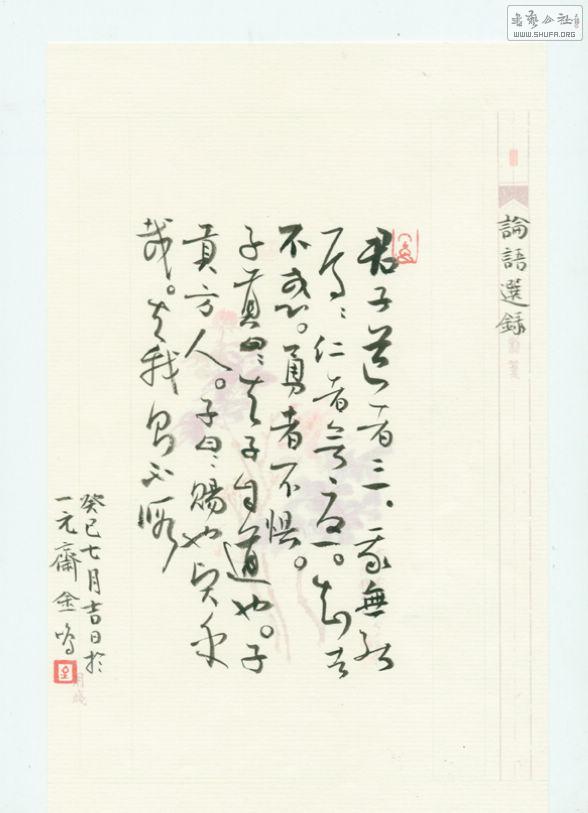 書藝公社
WWW.SHUFA.ORG
論語選録
君子道者三、我無能
焉：仁者不憂。知者
不惑。勇者不惧。
子貢曰：夫子自道也。子
貢方人。子曰：賜也賢乎
哉。夫我則不暇
癸巳七月吉日於
一元齋金鳴